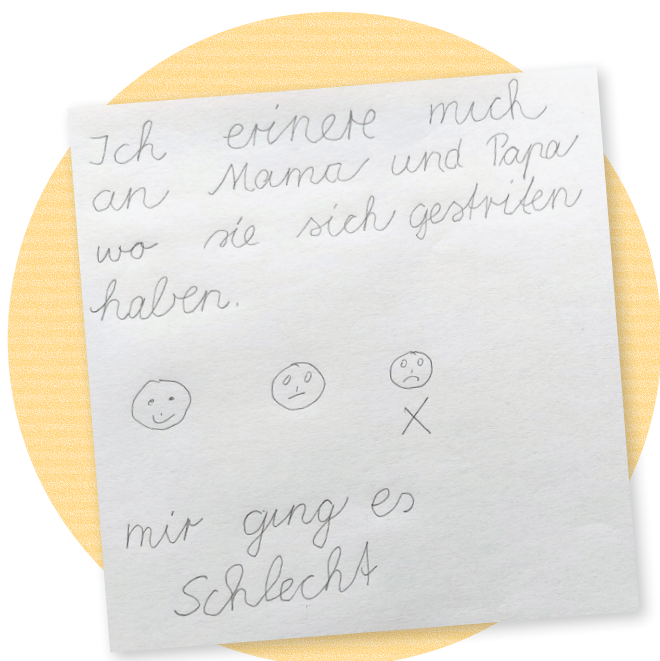 Ich erinere mich
an Mama und Papa
wo sie sich gestriten
haben.
mir ging es
Schlecht